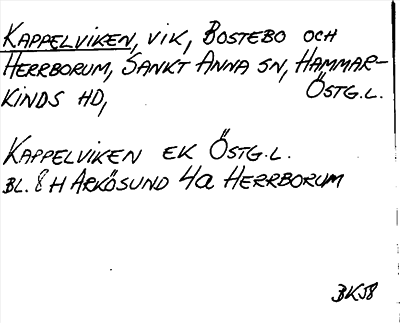 KAPPELVIKEN, VIK, BOSTEBO OCH
HERRBORUM, SANKT ANNA SN, HAMMAR-
KINDS HD, ÖSTG.L.
KAPPELVIKEN EK ÖSTG.L.
BL. 8 H ARKÖSUND 4a HERRBORUM
BKS8